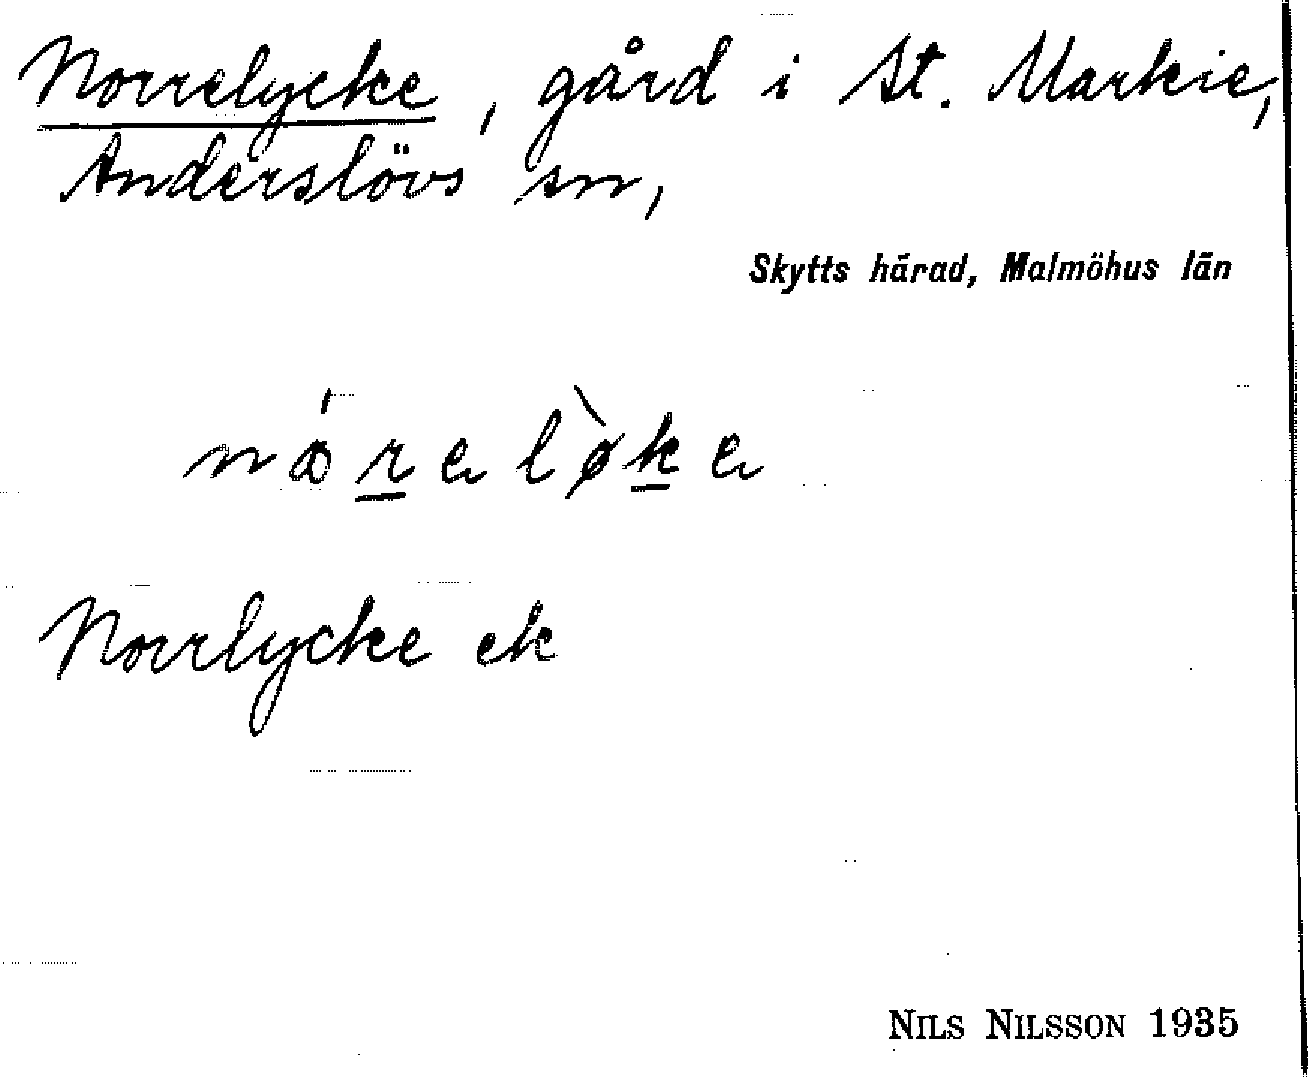 Norrelycke, gård i St. Markie,
Anderslövs sn,
Skytts härad, Malmöhus län
Norrlycke ek
NILS NILSSON 1935